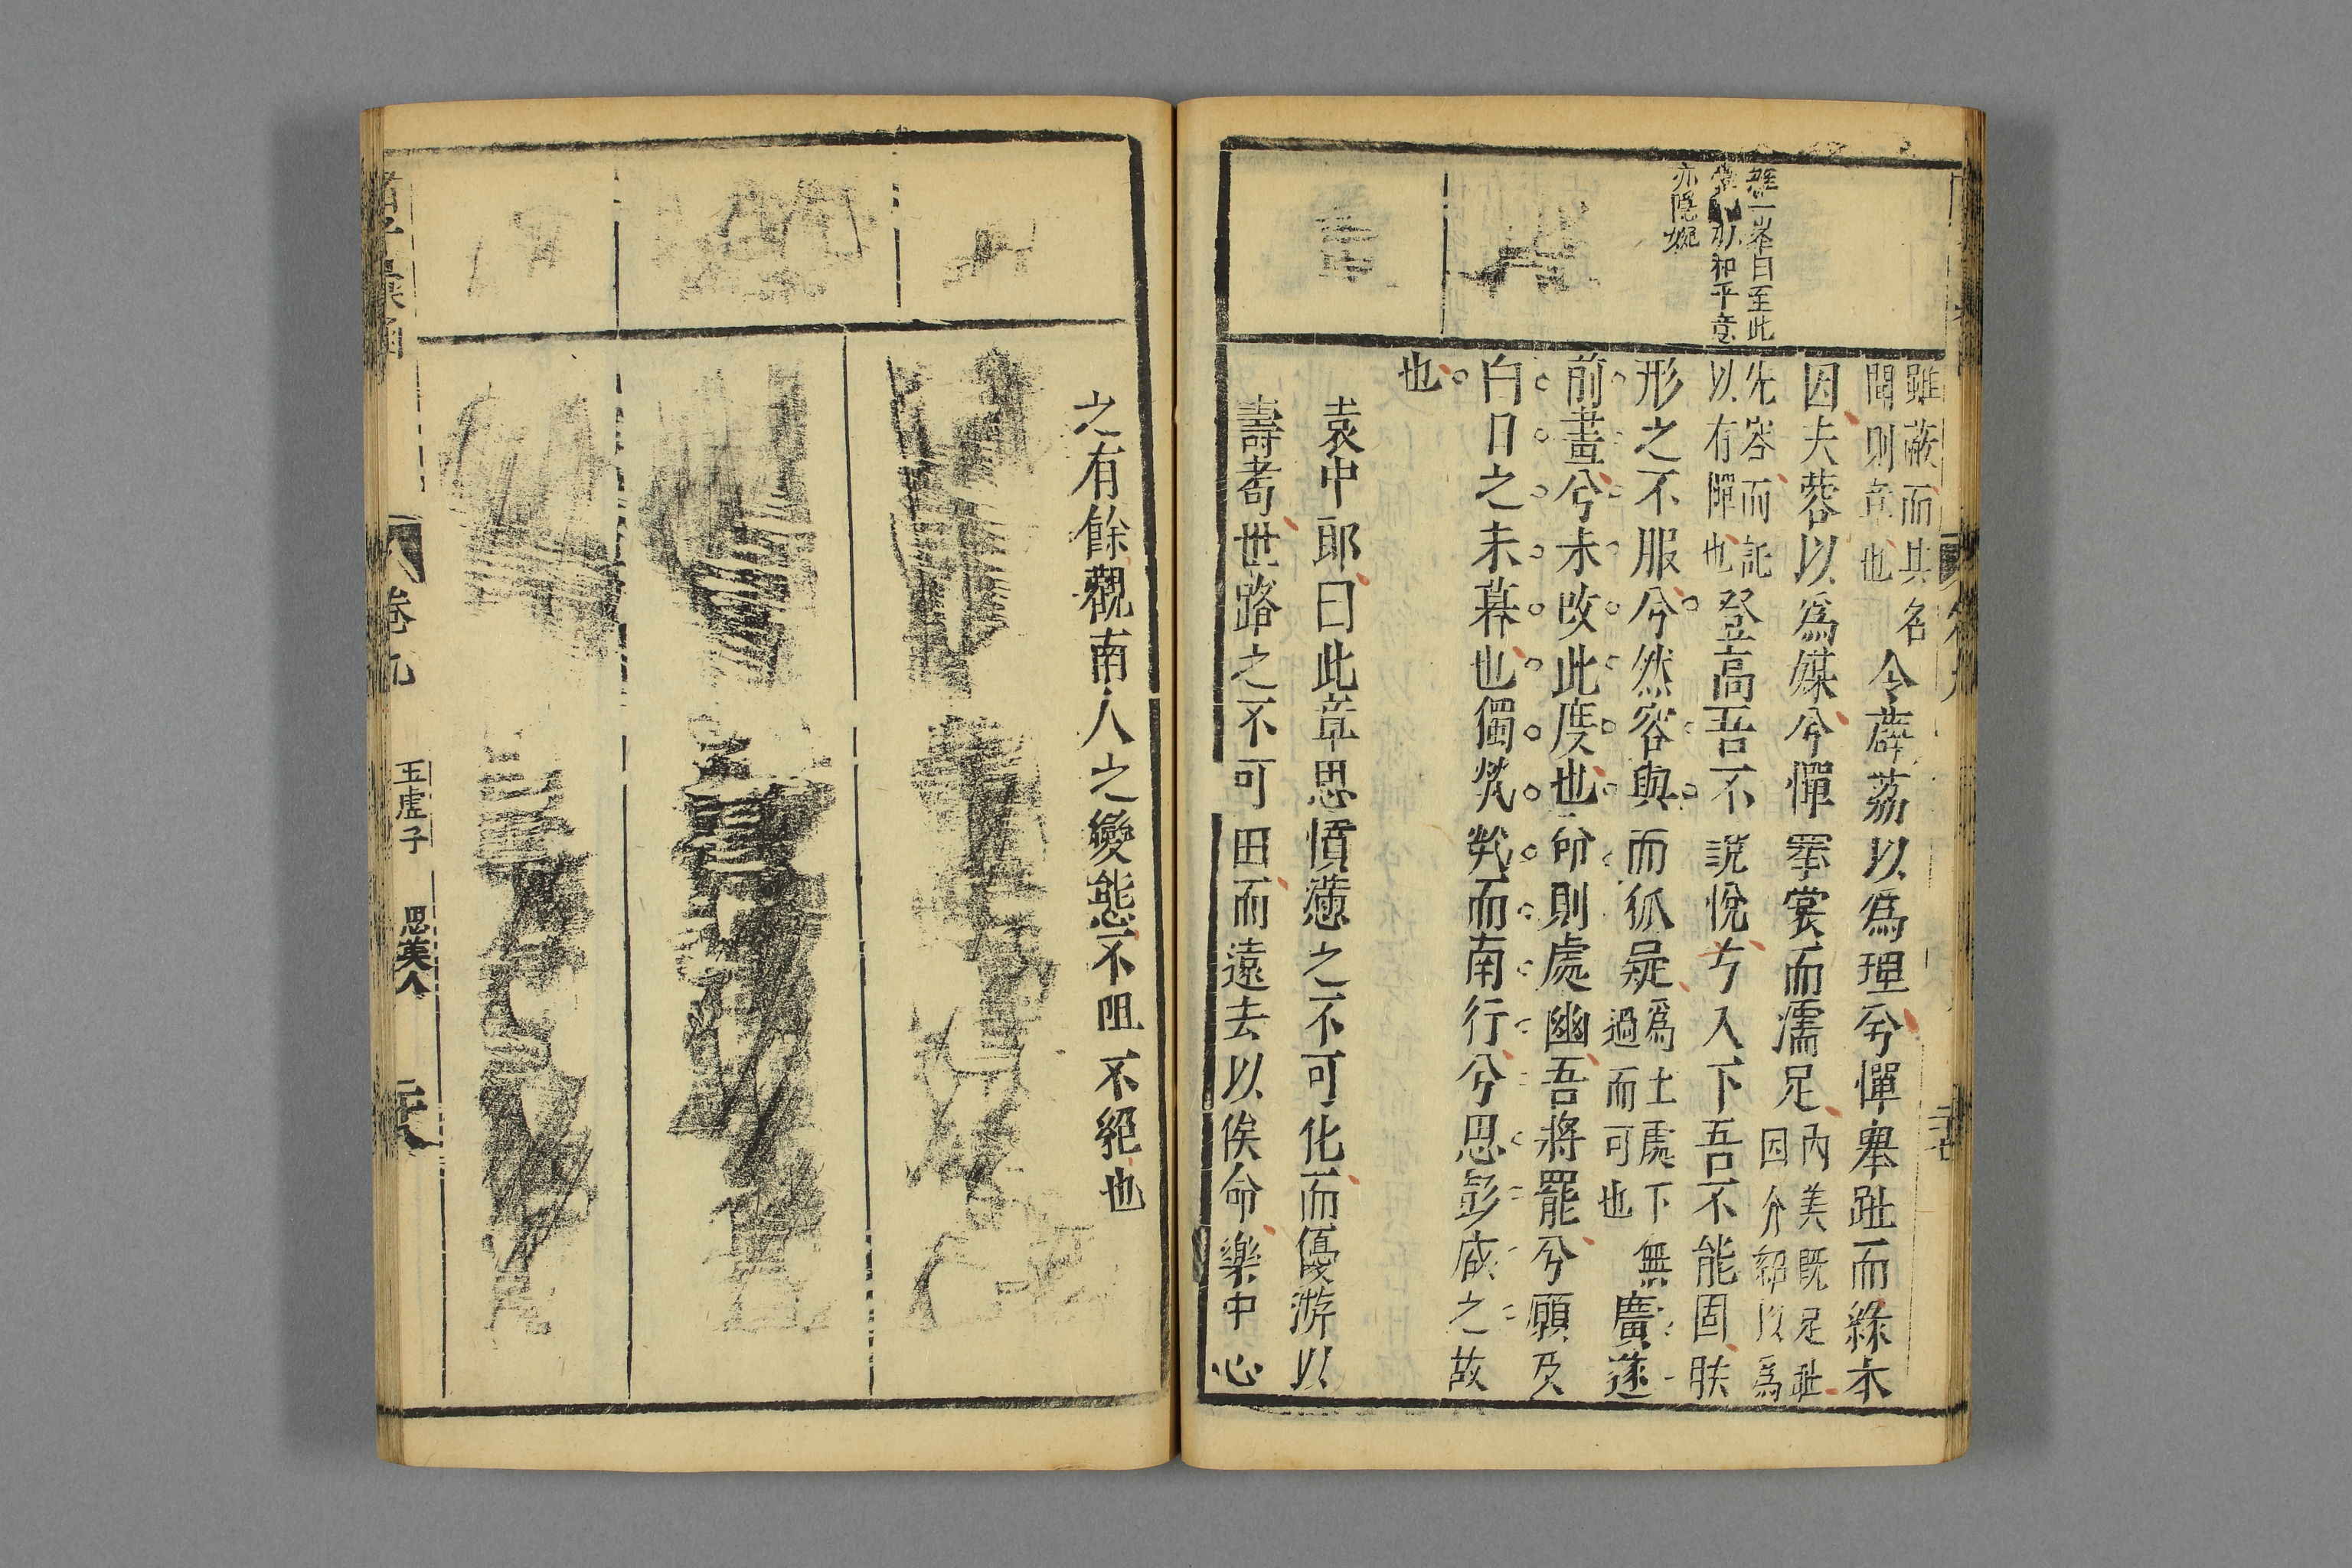 亦隱婉
雖蔽而其名
聞則章也
令薜荔以爲理兮憚舉趾而緣木
因夫蓉以爲媒兮憚褰裳而濡足
內美既足耻
因介紹以爲
先容而託
以有憚也
登高吾不說悅兮入下吾不能固朕
形之不服兮然容與而狐疑
爲土處下無
過而可也
廣遂
前畫兮未改此度也命則處幽吾將罷兮願及
白日之未暮也獨煢煢而南行兮思彭咸之故
也
袁中郎曰此章思憤懣之不可化而優游以
壽考世路之不可由而遠去以俟命樂中心
之有餘觀南人之變態不阻不絕也
卷九
玉虛子
思美人